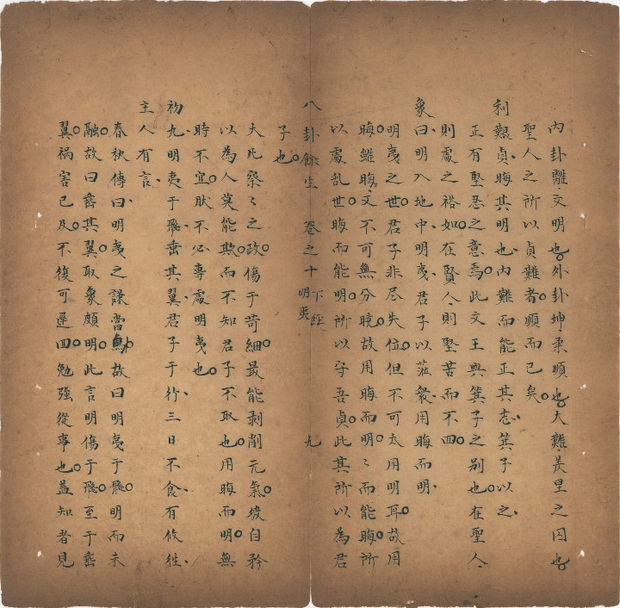 內卦離文明也外卦坤柔順也大難羑里之囚也
聖人之所以貞難者順而已矣
利艱貞晦其明也內難而能正其志箕子以之
正有堅忍之意焉此文王與箕子之別也在聖人
則處之裕如在賢人則堅苦而不回
象曰明入地中明夷君子以蒞衆用晦而明
明夷之世君子非尽失位但不可太用明耳故用
晦雖晦文不可無分曉故用晦而明〻而能晦所
以處乱世晦而能明所以守吾貞此其所以為君
子也
八卦餘生 卷之十 下經 明夷 九
大凡察〻之政傷于苛細最能剥削元氣彼自矜
以為人莫能欺而不知君子不取也用晦而明無
時不宜肰不必專處明夷也
初九明夷于飛垂其翼君子于行三日不食有攸徃
主人有言
春秋傳曰明夷之謙當鳥故曰明夷于飛明而未
融故曰垂其翼取象頗明此言明傷于飛至于垂
翼禍害已及不復可遲回勉强從事也盖知者見